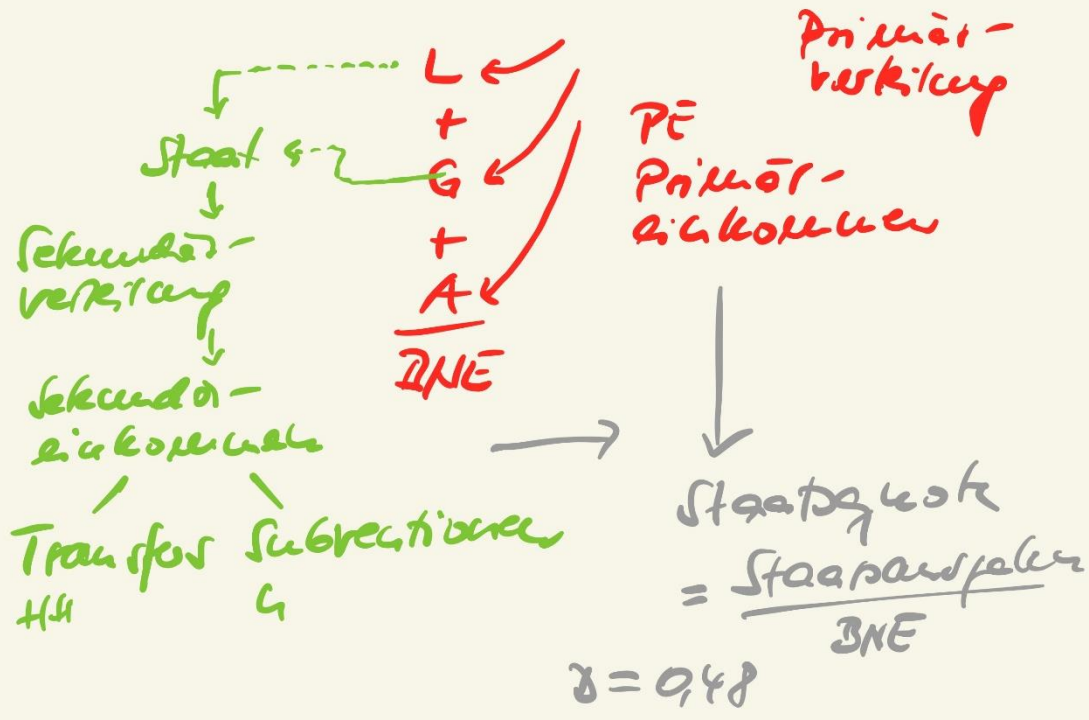 Primär-
verteilung
L
+
G
+
A
BNE
PE
Primär-
einkommen
Staat
Sekundär-
verteilung
Sekundär-
einkommen
Transfers Subventionen
HH G
Staatsquote
= Staatsausgaben
BNE
D = 0,48